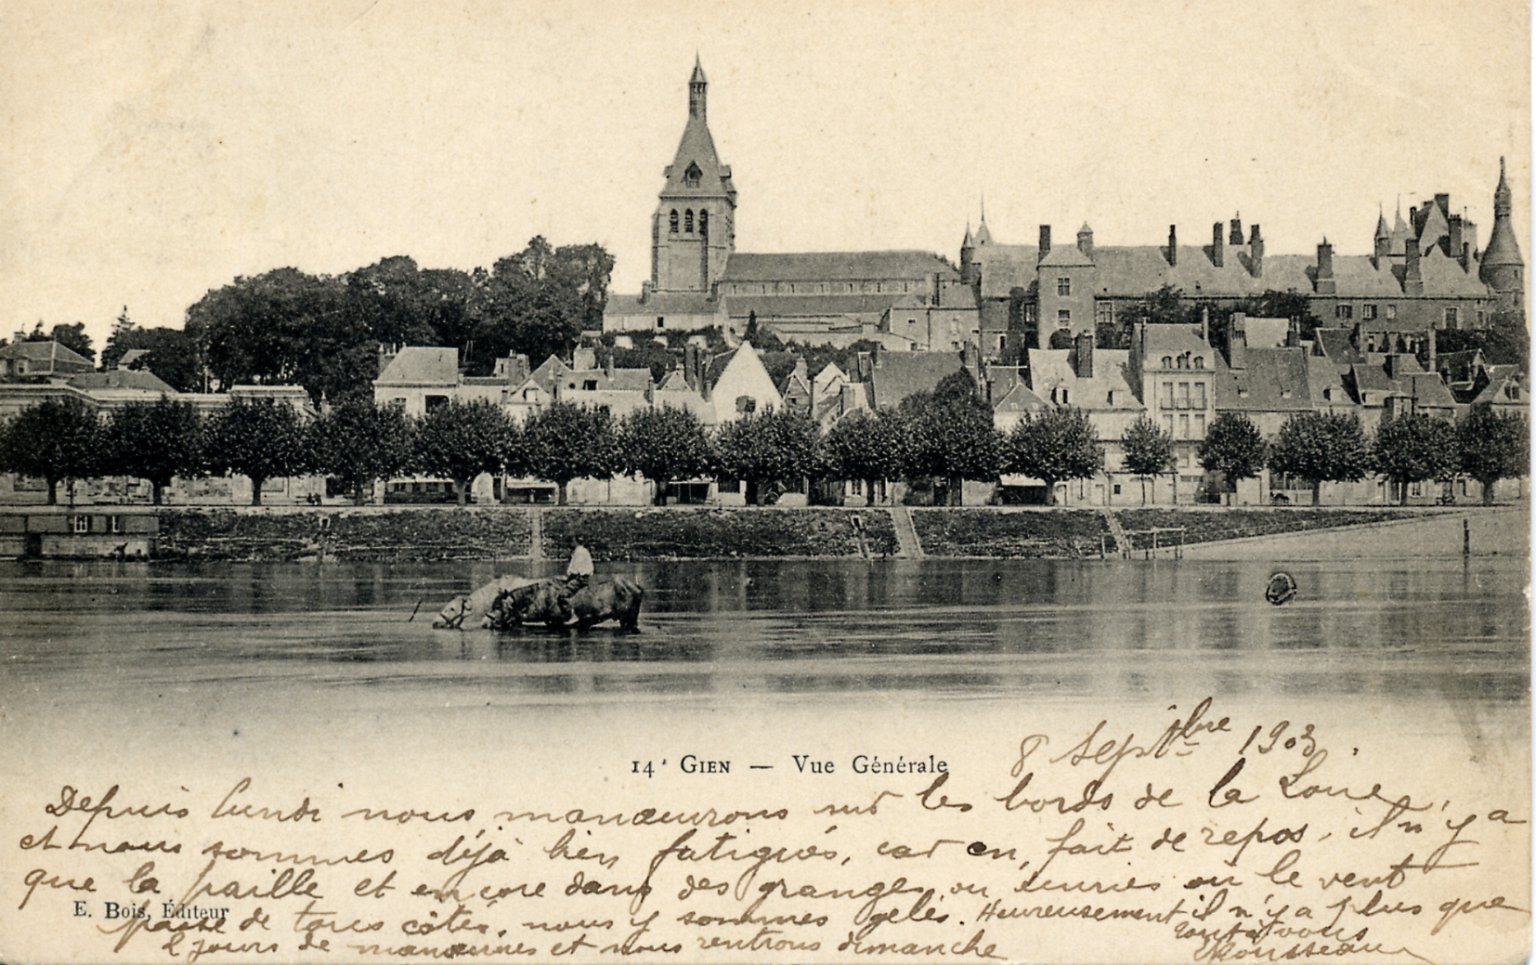 14. GIEN — Vue Générale
8 Septbre 1903.
Depuis lundi nous manœuvrons sur les bords de la Loire,
et nous sommes déjà bien fatigués, car en fait de repos, il n'y a
que la paille et encore dans des granges ou écuries où le vent
E. Bois, Éditeur
passe de tous côtés, nous y sommes gelés. Heureusement il n'y a plus que
2 jours de manœuvres et nous rentrons dimanche
Tout à vous
Rousseau